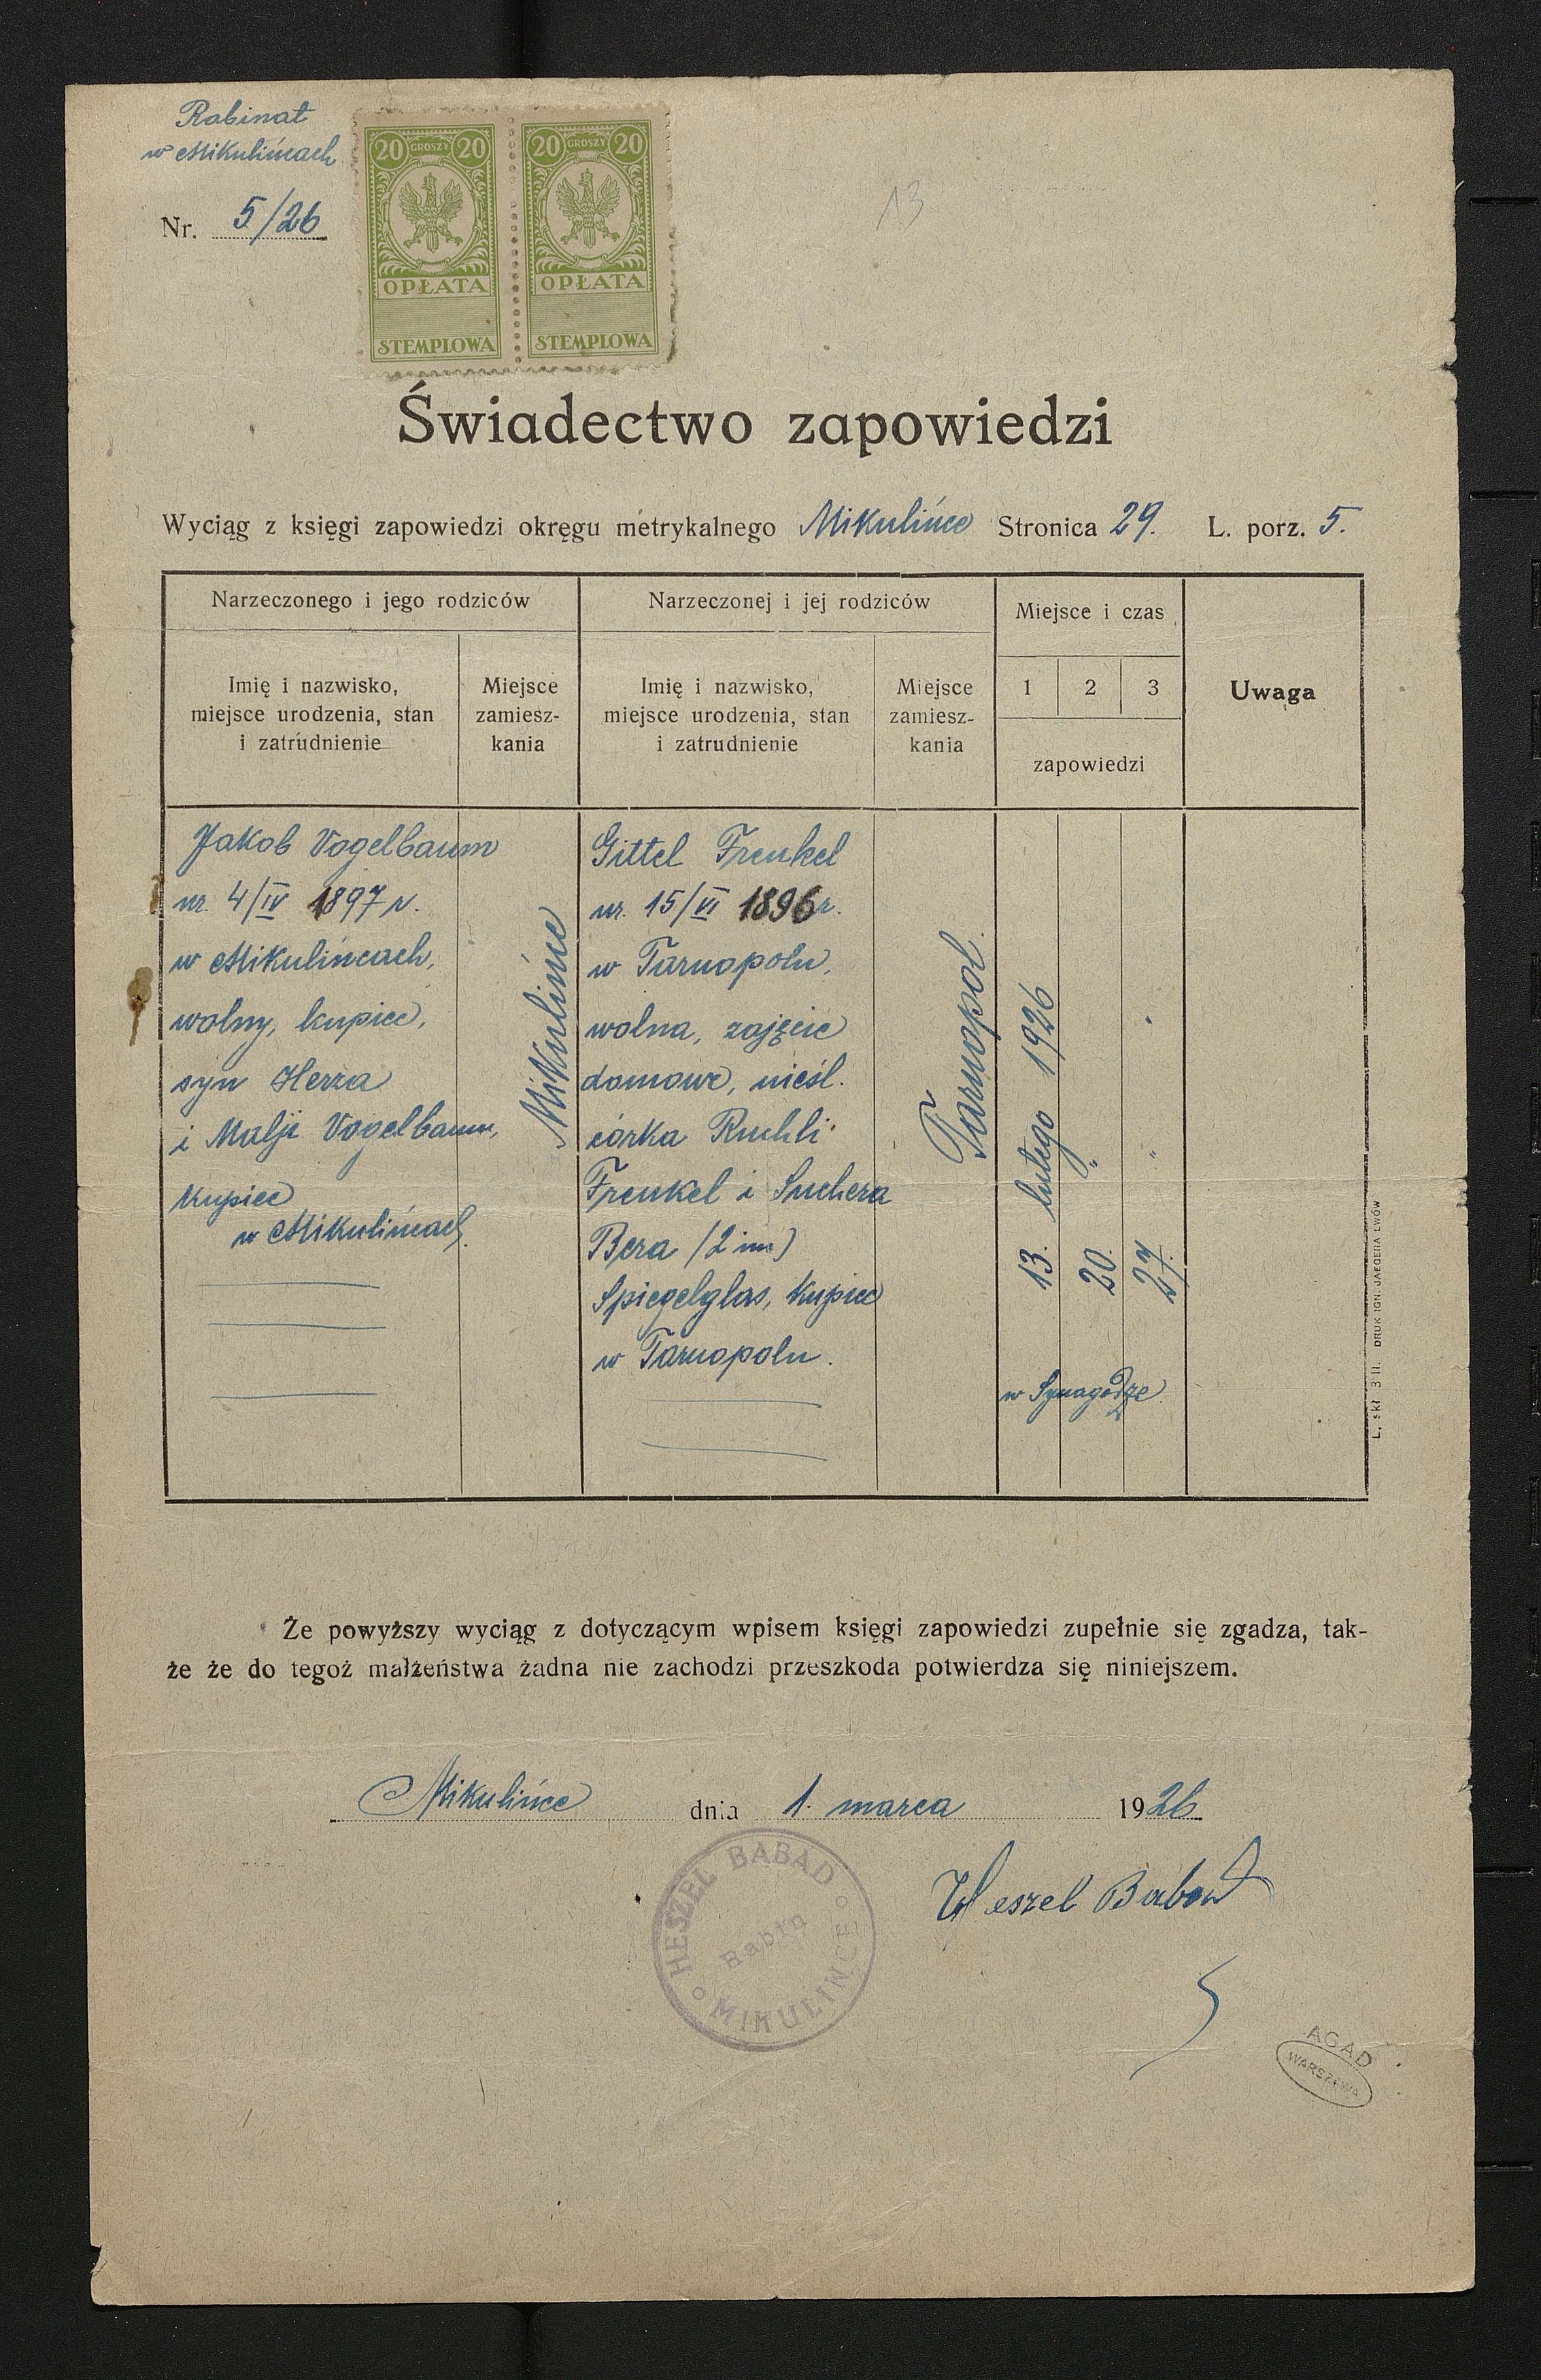 Rabinat
w Mikulińcach
Nr. 5/26
20 GROSZY 20
OPŁATA
STEMPLOWA
20 GROSZY 20
OPŁATA
STEMPLOWA
13
Świadectwo zapowiedzi
Wyciąg z księgi zapowiedzi okręgu metrykalnego Mikulińce Stronica 29. L. porz. 5.
Narzeczonego i jego rodziców
Imię i nazwisko,
miejsce urodzenia, stan
i zatrudnienie
Miejsce
zamiesz-
kania
Narzeczonej i jej rodziców
Imię i nazwisko,
miejsce urodzenia, stan
i zatrudnienie
Miejsce
zamiesz-
kania
Miejsce i czas
1 2 3
zapowiedzi
Uwaga
Jakob Vogelbaum
ur. 4/IV 1897 r.
w Mikulińcach,
wolny, kupiec,
syn Herza
i Malji Vogelbaum,
kupiec
w Mikulińcach.
Mikulińce
Gittel Frenkel
ur. 15/VI 1896 r.
w Tarnopolu,
wolna, zajęcie
domowe, nieśl.
córka Ruchli
Frenkel i Suchera
Bera (2 im)
Spiegelglas, kupiec
w Tarnopolu.
Tarnopol.
13. lutego 1926
20. "
27. " "
w Synagodze
L. skł. 3 II. DRUK IGN. JAEGERA LWÓW
Że powyższy wyciąg z dotyczącym wpisem księgi zapowiedzi zupełnie się zgadza, tak-
że że do tegoż małżeństwa żadna nie zachodzi przeszkoda potwierdza się niniejszem.
Mikulińce dnia 1. marca 1926
HESZEL BABAD
Rabin
MIKULIŃCE
Heszel Babad
AGAD
WARSZAWA